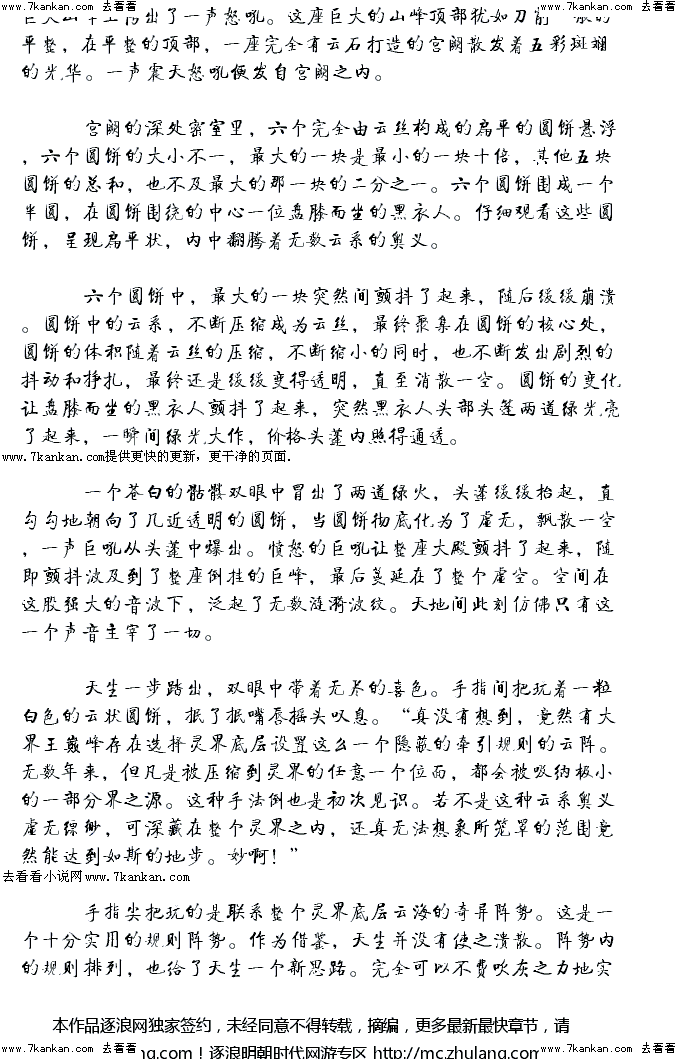 www.7kankan.com 去看看 www.7kankan.com 去看看 www.7kankan.com 去看看 www.7kankan.com 去看看 www.7kankan.com 去看看
出了一声怒吼。这座巨大的山峰顶部犹如刀削一般的
平整，在平整的顶部，一座完全有云石打造的宫阙散发着五彩斑斓
的光华。一声震天怒吼便发自宫阙之内。
宫阙的深处密室里，六个完全由云丝构成的扁平的圆饼悬浮
，六个圆饼的大小不一，最大的一块是最小的一块十倍，其他五块
圆饼的总和，也不及最大的那一块的二分之一。六个圆饼围成一个
半圆，在圆饼围绕的中心一位盘膝而坐的黑衣人。仔细观看这些圆
饼，呈现扁平状，内中翻腾着无数云系的奥义。
六个圆饼中，最大的一块突然间颤抖了起来，随后缓缓崩溃
。圆饼中的云系，不断压缩成为云丝，最终聚集在圆饼的核心处，
圆饼的体积随着云丝的压缩，不断缩小的同时，也不断发出剧烈的
抖动和挣扎，最终还是缓缓变得透明，直至消散一空。圆饼的变化
让盘膝而坐的黑衣人颤抖了起来，突然黑衣人头部头蓬两道绿光亮
了起来，一瞬间绿光大作，价格头蓬内照得通透。
www.7kankan.com提供更快的更新，更干净的页面.
一个苍白的骷髅双眼中冒出了两道绿火，头蓬缓缓抬起，直
勾勾地朝向了几近透明的圆饼，当圆饼彻底化为了虚无，飘散一空
，一声巨吼从头蓬中爆出。愤怒的巨吼让整座大殿颤抖了起来，随
即颤抖波及到了整座倒挂的巨峰，最后蔓延在了整个虚空。空间在
这股强大的音波下，泛起了无数涟漪波纹。天地间此刻仿佛只有这
一个声音主宰了一切。
天生一步踏出，双眼中带着无尽的喜色。手指间把玩着一粒
白色的云状圆饼，抿了抿嘴唇摇头叹息。“真没有想到，竟然有大
界王巅峰存在选择灵界底层设置这么一个隐蔽的牵引规则的云阵。
无数年来，但凡是被压缩到灵界的任意一个位面，都会被吸纳极小
的一部分界之源。这种手法倒也是初次见识。若不是这种云系奥义
虚无缥缈，可深藏在整个灵界之内，还真无法想象所笼罩的范围竟
然能达到如斯的地步。妙啊！”
去看看小说网www.7kankan.com
手指尖把玩的是联系整个灵界底层云海的奇异阵势。这是一
个十分实用的规则阵势。作为借鉴，天生并没有使之溃散。阵势内
的规则排列，也给了天生一个新思路。完全可以不费吹灰之力地实
本作品逐浪网独家签约，未经同意不得转载，摘编，更多最新最快章节，请
www.7kankan.com 去看看 ng.com！逐浪明朝时代网游专区 http://mc.zhulang.com www.7kankan.com 去看看